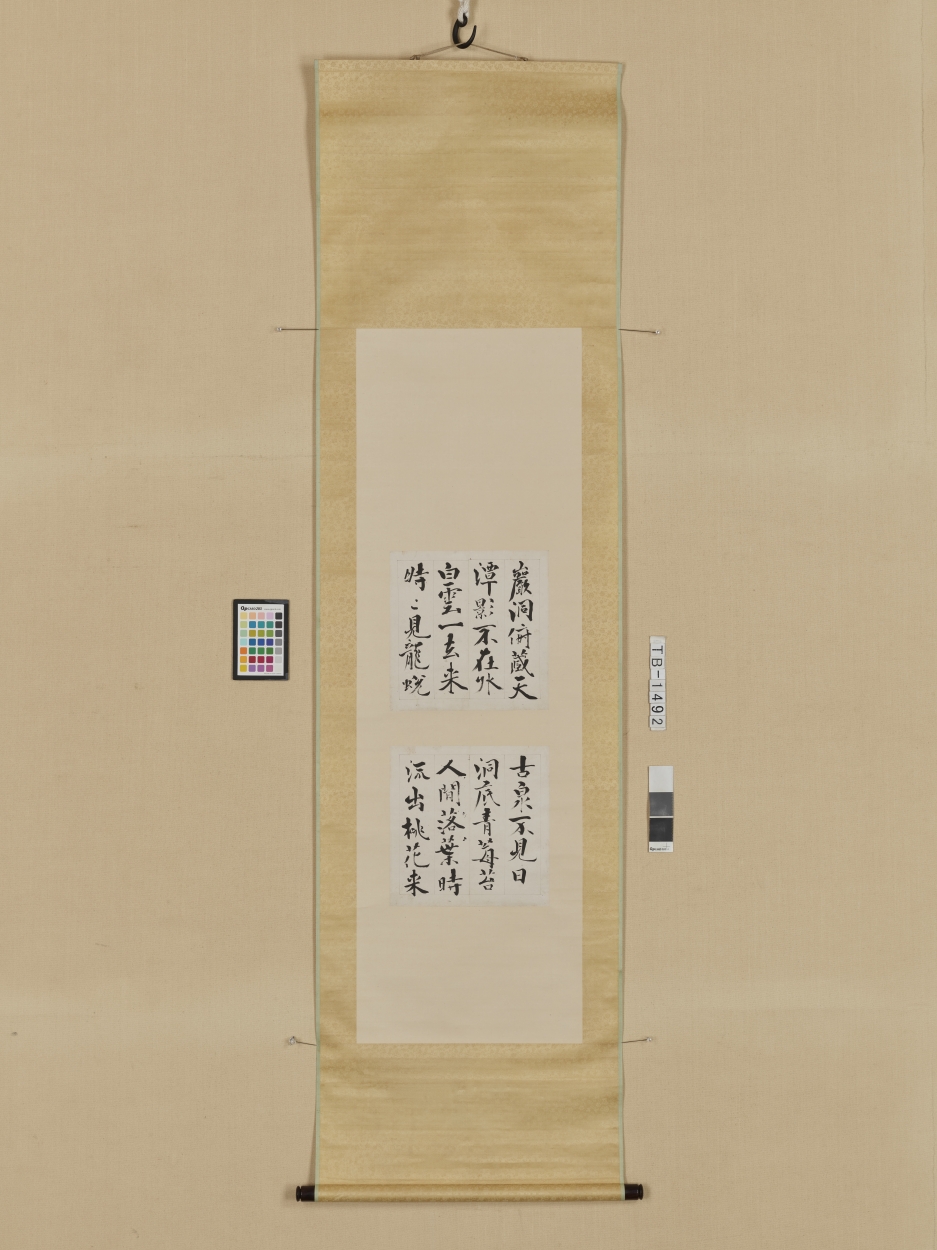 巖洞俯藏天
潭影不在外
白雲一去来
時〻見龍蛻
古泉不見日
洞底青莓苔
人間落葉時
流出桃花来
TB-1492